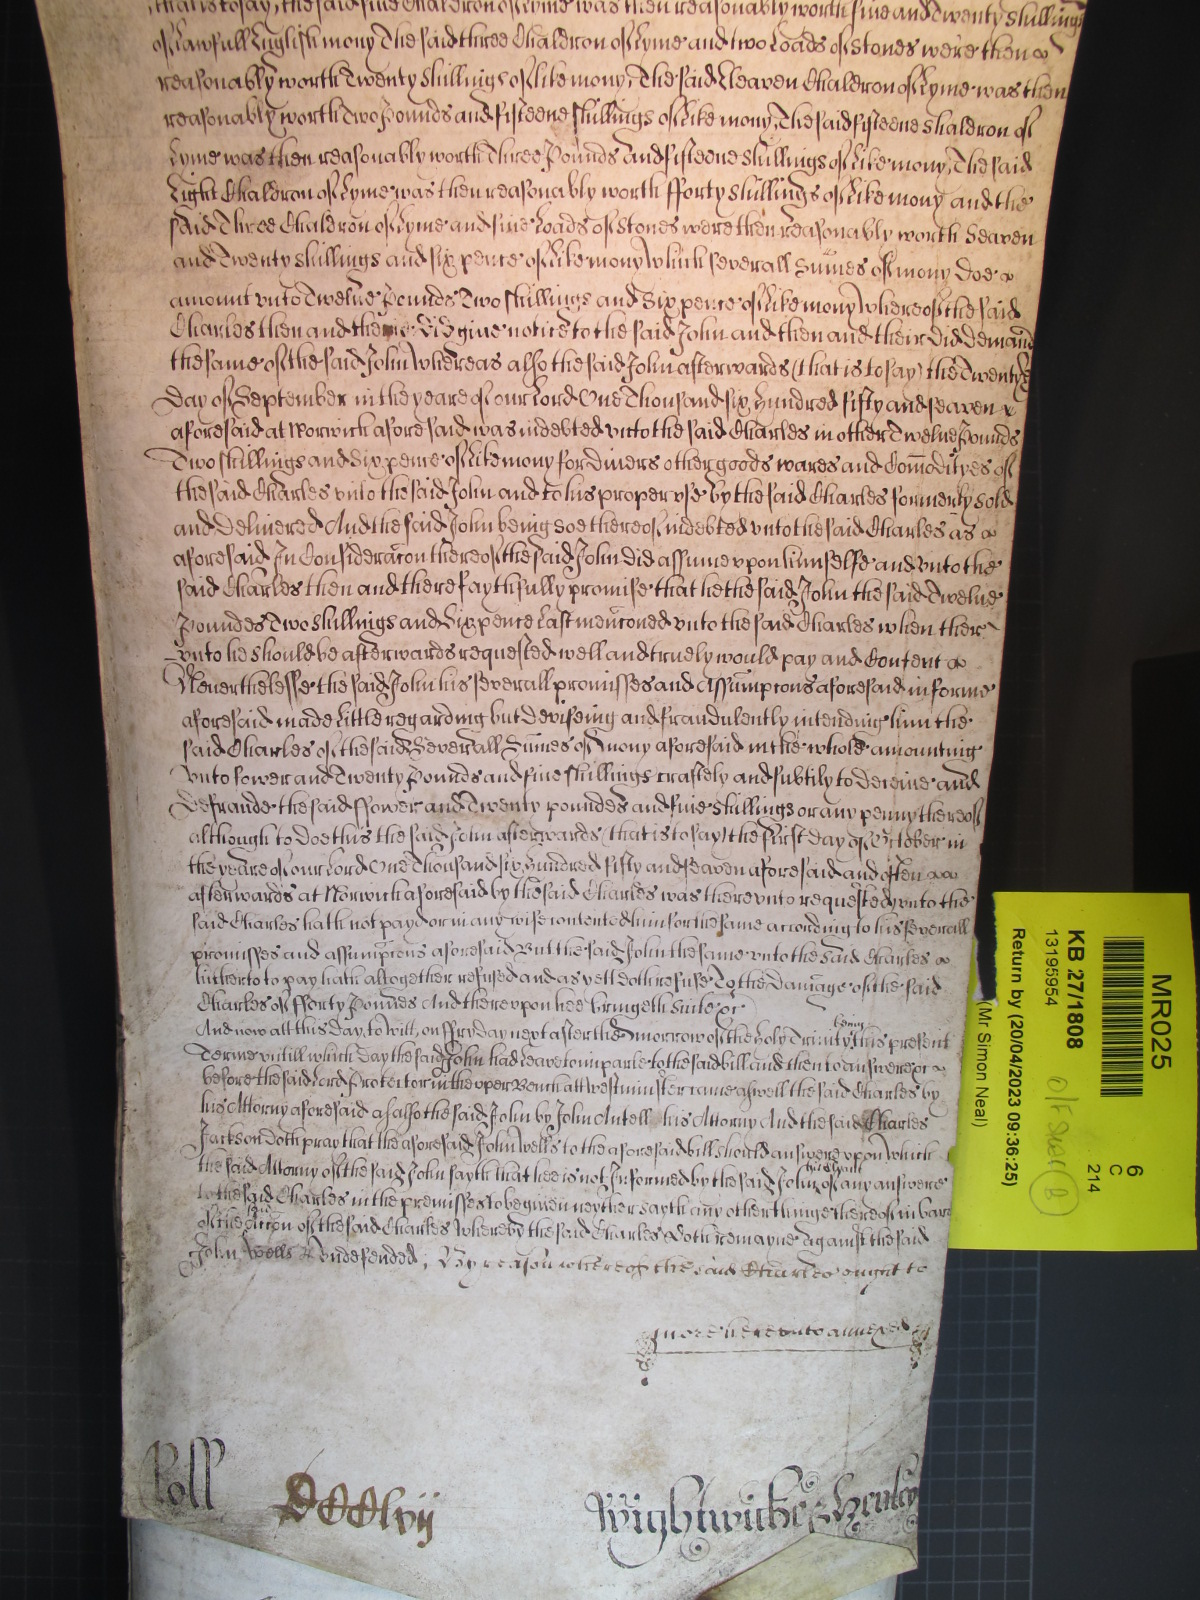 that is to say, the said five Chaldron of Lyme was then reasonably worth five and Twenty shillings
of Lawfull English mony The said three Chaldron of Lyme and two Loads of stones were then
reasonably worth Twenty shillings of like mony, The said Eleaven Chaldron of Lyme was then
reasonably worth Two Pounds and fifteene shillings of like mony, The said fifteene Chaldron of
Lyme was then reasonably worth Three Pounds and fifteene shillings of like mony, The said
Eight Chaldron of Lyme was then reasonably worth fforty shillings of like mony and the
said Three Chaldron of Lyme and five Loads of stones were then reasonably worth Seaven
and Twenty shillings and six pence of like mony Which severall Sum̄es of mony doe
amount vnto Twelve Pounds Two shillings and Six pence of like mony Whereof the said
Charles then and there did give notice to the said John and then and their did demand
the same of the said John Whereas also the said John afterwards (that is to say) the Twenty
Day of September in the yeare of our Lord One Thousand six hundred fifty and seaven
aforesaid at Norwich aforesaid was indebted vnto the said Charles in other Twelve Pounds
Two shillings and Six pence of like mony for divers other goods wares and Com̄odityes of
the said Charles vnto the said John and to his proper vse by the said Charles formerly sold
and delivered And the said John being soe thereof indebted vnto the said Charles as
aforesaid In Considerac̄on thereof the said John did assume vpon himselfe and vnto the
said Charles then and there faythfully promise that he the said John the said Twelve
Poundes Two shillings and Six pence Last menc̄oned vnto the said Charles when there
vnto he should be afterwards requested well and truely would pay and Content
Neverthelesse the said John his severall promisses and Assumpc̄ons aforesaid in forme
aforesaid made little regarding but deviseing and fraudulently intending him the
said Charles of the said Severall Sum̄es of mony aforesaid in the whole amounting
vnto fower and Twenty Pounds and five shillings craftely and subtily to deceive and
defraude the said ffower and Twenty poundes and five shillings or any penny thereof
although to doe this the said John afterwards (that is to say) the first day of October in
the yeare of our Lord One Thousand six hundred fifty and seaven aforesaid and often
afterwards at Norwich aforesaid by the said Charles was therevnto requested, vnto the
said Charles hath not payd or in any wise contented him for the same according to his severall
promisses and assumpc̄ons aforesaid But the said John the same vnto the said Charles
hitherto to pay hath altogether refused and as yett doth refuse To the Damage of the said
Charles of fforty Poundes And therevpon hee bringeth suite &c
And now att this day, to Witt, on ffryday next after the morrow of the Holy Trinity being this present
Terme vntill which day the said John had leave to imparle to the said bill and then to answere &c
before the said Lord Protector in the vpper Bench att Westminster came aswell the said Charles by
his Attorny aforesaid as also the said John by John Antell his Attorny And the said Charles
Jackson doth pray that the aforesaid John Wells to the aforesaid bill should answere vpon Which
the said Attorny of the said John sayth that hee is not Informed by the said John his Clyent of any answere
to the said Charles in the premisses to be given neyther sayth any other thinge thereof in barr
of the said Acc̄on of the said Charles Whereby the said Charles doth remayne against the said
John Wells Vndefended, By reason whereof the said Charles ought to
more herevnto annexed
Roll DCClvij Wightwicke & Henley
MR025
KB 27/1808
13195954
Return by (20/04/2023 09:36:25)
(Mr Simon Neal)
6
C
214